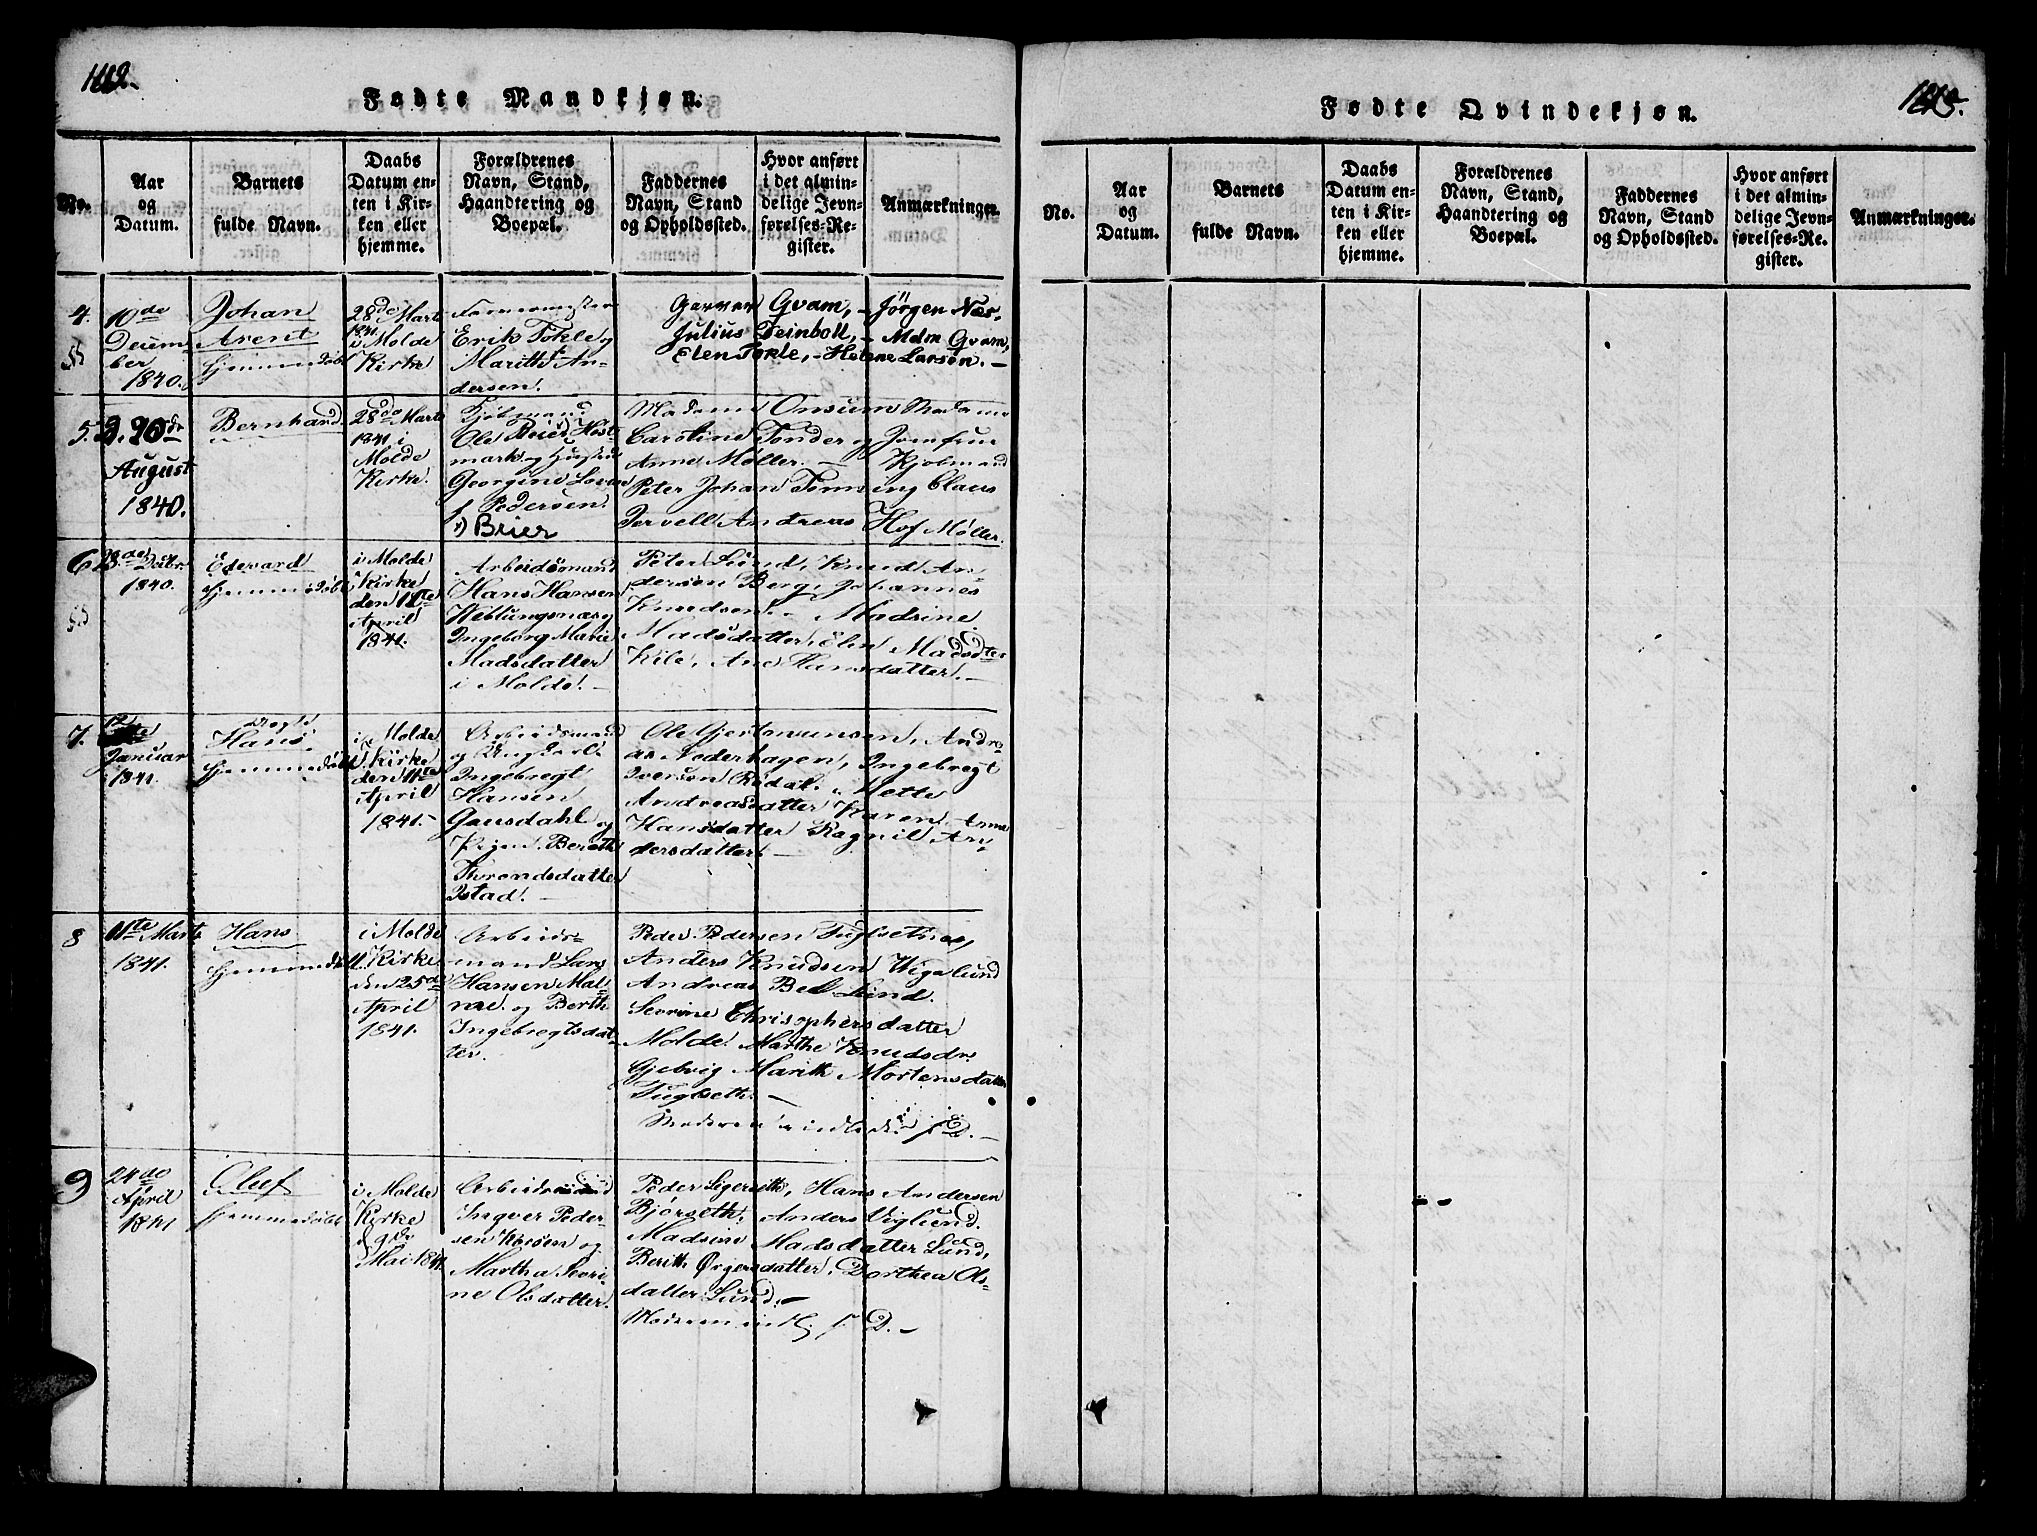 Fødte Mandkjøn.
No.
Aar
og
Datum.
Barnets
fulde Navn.
Daabs
Datum en-
ten i Kir-
ken eller
hjemme.
Forældrenes
Navn, Stand,
Haandtering og
Boepæl.
Faddernes
Navn, Stand
og Opholdssted.
Hvor anført
i det almin-
delige Jevn-
førelses-Re-
gister.
Anmærkninger.
4.
10de
Decem-
ber
1840.
Johan
Arent
hjemmedøbt
28de Marts
1841.
i Molde
Kirke
Erik Tokle og
Marith An-
dersen.
Garver Qvam, - Jörgen Næs-
Julius Deinboll, - Mdm Qvam,
Elen Tokle, - Helene Larsen. -
5.
20de
August
1840.
Bernhard
28de Marts
1841. i
Molde
Kirke.
Kjøbmand
Ole Beier Høst-
mark og Hustru
Georgine Lovise
f. Pedersen.
Brier
Madame Onsum Madame
Caroline Tønder og Jomfrue
Anne Møller. - Kjøbmand
Peter Johan Tønning Claus
Dervell Andreas Hof Møller.
6
28de Decbr
1840.
Edevard
hjemmedøbt
i Molde
Kirke
den 11te
April
1841.
Arbeidsmand
Hans Hansen
Weblungsnæs og
Ingeborg Marie
Madsdatter
i Molde. -
Peter Lund, Knud An-
dersen Berg, Johannes
Knudsen. - Madsine
Madsdatter, Elen Madsdtr
Kile, Ane Hansdatter. -
7.
12
Januar
1841.
Hans
hjemmedøbt
i Molde
Kirke
den 11te
April
1841. -
Arbeidsmand
og Ungkarl
Ingebregt
Hansen
Gausdahl og
Pigen Bereth
Throndsdatter
Istad. -
Ole Gjertmunsen, Andre-
as Nederhagen, Ingebregt
Iversen Rødal. Mette
Andreasdatter Karen Anne
Hansdatter Ragnil An-
dersdatter. -
8
11te Marts
1841.
Hans
hjemmedøbt
i Molde
Kirke
den 25de
April
1841.
Arbeids-
mand Lars
Hansen Mal-
møe og Berth
Ingebregtsdat-
ter.
Peder Pedersen Fuglsethæ
Anders Knudsen Wigelund
Andreas Lund.
Sevrine Chrisophersdatter
Molde Marthe Knudsdr
Gjelvig Marith Mortensdatter
Fuglseth. -
Moderen indledt s. D. -
9
24de
April
1841
Oluf
hjemmedøbt
i Molde
Kirke
d. 9de
Mai 1841.
Arbeidsmand
Ingver Peder-
sen og
Martha Sevri-
ne Olsdatter.
Peder Ligerseth, Hans Andersen
Bjørseth, Anders Viglund.
Madsine Madsdatter Lund,
Berith Ørgersdatter, Dorthea Ols-
datter Lund. -
Moderen indl. s. D. -
Fødte Qvindekjøn.
No.
Aar
og
Datum.
Barnets
fulde Navn.
Daabs
Datum en-
ten i Kir-
ken eller
hjemme.
Forældrenes
Navn, Stand,
Haandtering og
Boepæl.
Faddernes
Navn, Stand
og Opholdssted.
Hvor anført
i det almin-
delige Jevn-
førelses-Re-
gister.
Anmærkninger.